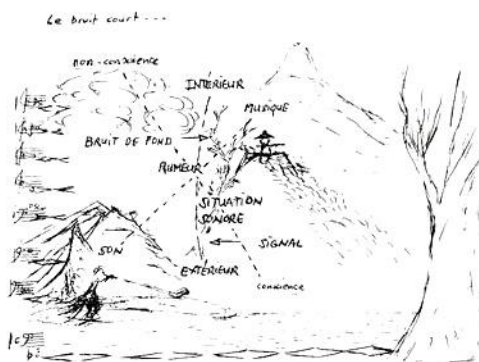 Le bruit court...
non-conscience
INTÉRIEUR
MUSIQUE
BRUIT DE FOND
RUMEUR
SITUATION
SONORE
SON
SIGNAL
EXTÉRIEUR
conscience